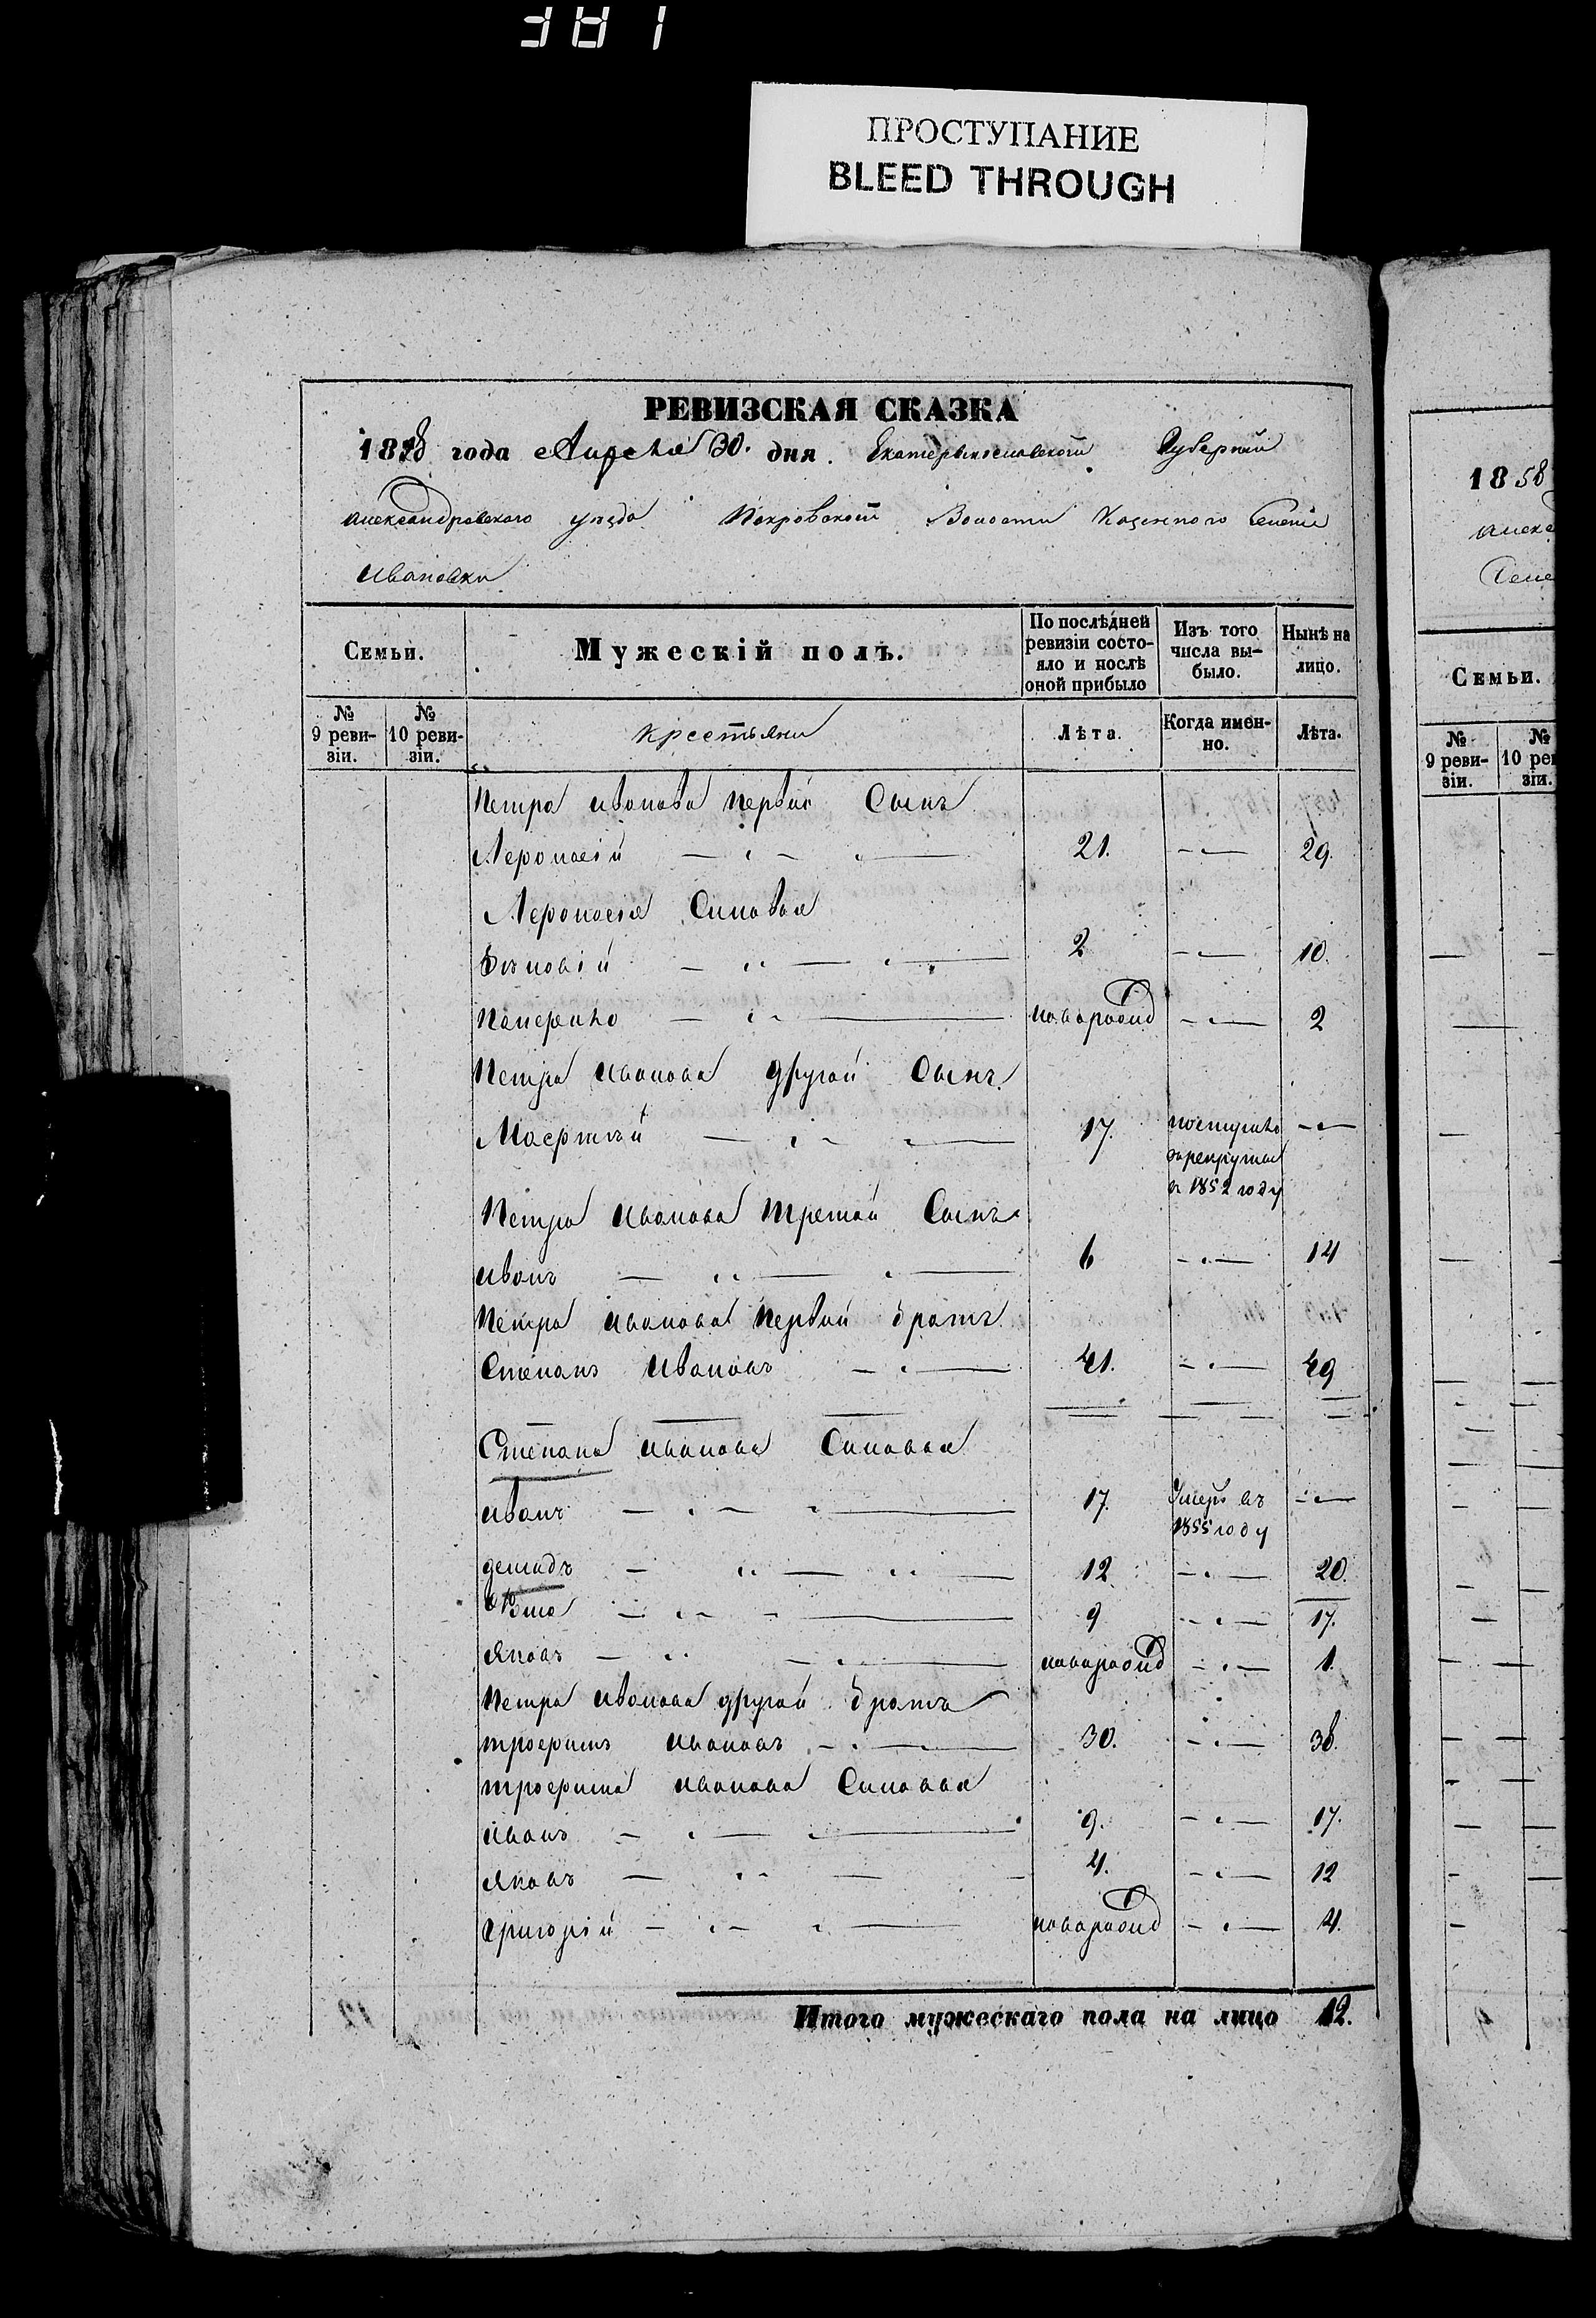 381
ПРОСТУПАНИЕ
BLEED THROUGH
РЕВИЗСКАЯ СКАЗКА
1858 года Апреля 30. дня. Екатеринославской Губернии
Александровского уезда Покровской Волости Казенного Селенія
Ивановки
Семьи. Мужескій полъ. По послѣдней ревизіи состо-яло и послѣ оной прибыло Изъ того числа вы-было. Нынѣ на лицо.
№ 9 реви-зіи. № 10 реви-зіи. крестьяни Лѣта. Когда имен-но. Лѣта.
Петра Иванова первий Сынъ
21. 29.
Синовья
2 10.
новорожд 2
Петра Иванова другой Сынъ
17. поступилъ в рекруты в 1852 году
Петра Иванова третий Сынъ
Иванъ 6 14
Петра Иванова первий братъ
Степанъ Ивановъ 41. 49
Степана Иванова Синовья
Иванъ 17. Умеръ въ 1855 году
демидъ 12 20.
9 17.
Яковъ новорожд 1.
Петра Иванова другой братъ
трофимъ Ивановъ 30. 38.
трофима Иванова Синовья
Иванъ 9. 17.
Яковъ 4. 12
Григорій новорожд 4.
Итого мужескаго пола на лицо 12.
1858
Семьи.
№ 9 реви-зіи. №